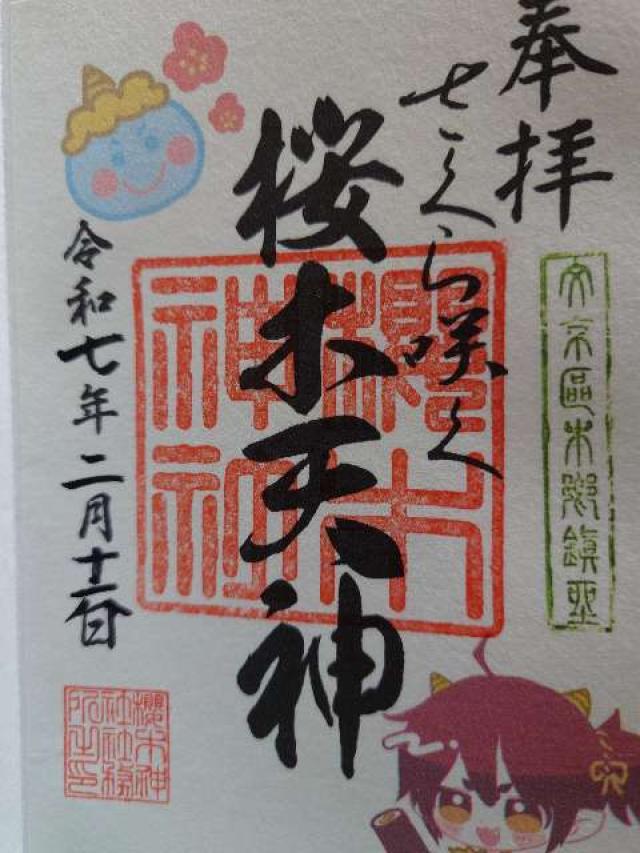 奉拝
さくら咲く
文京區本郷鎮座
桜木天神
櫻木
神社
令和七年二月十一日
櫻木神
社社務
所之印